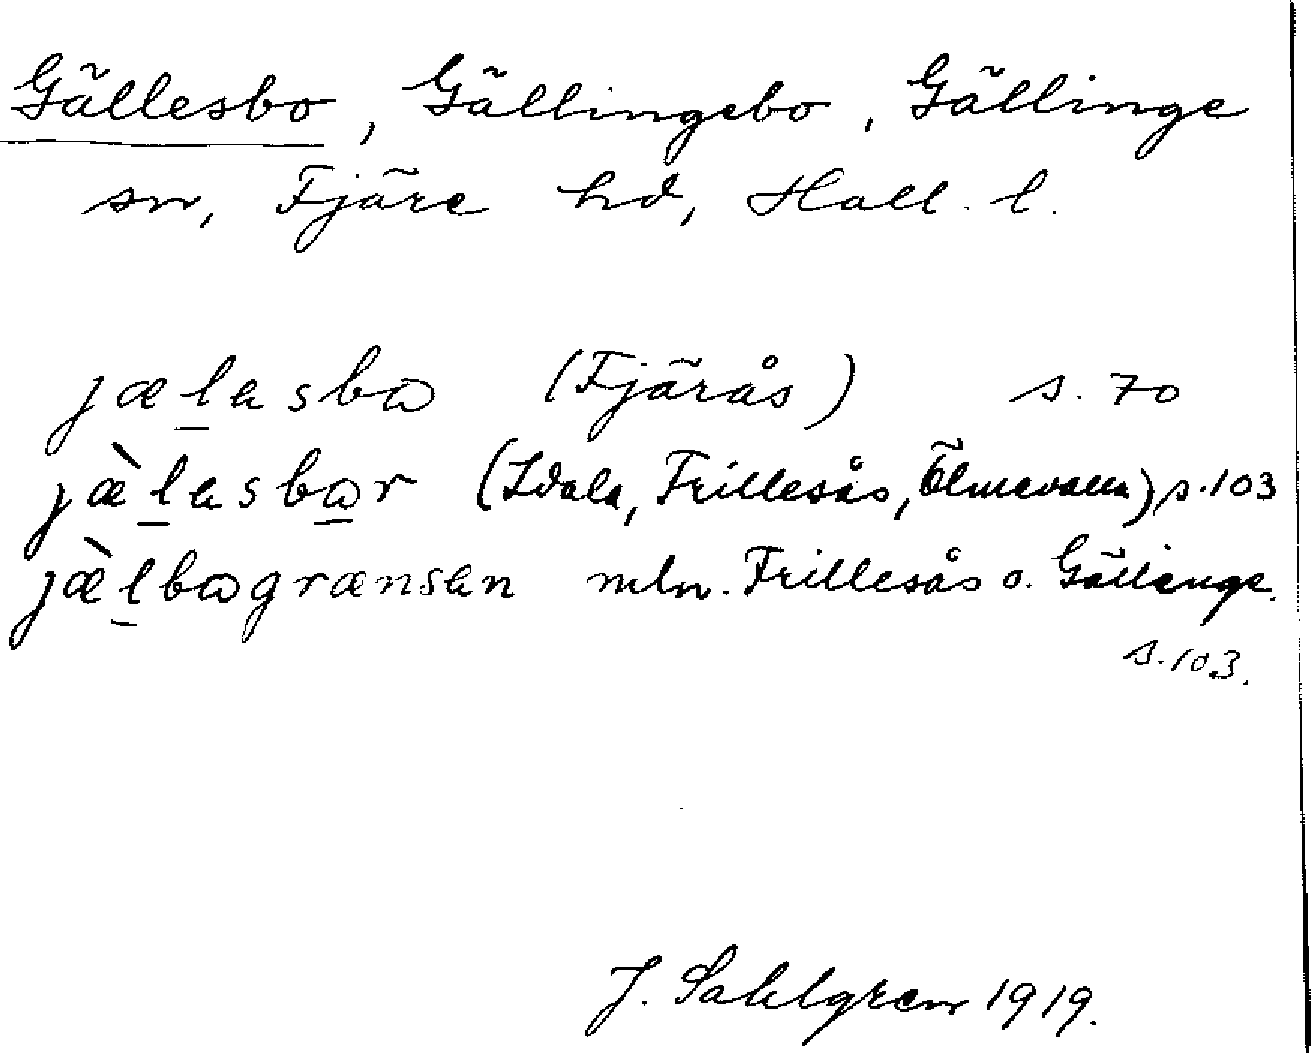 Gällesbo, Gällingebo, Gällinge
sn, Fjäre hd, Hall. l.
jælasbω (Fjärås) s. 70
jæ̀lasbωr (Idala, Frillesås, Ölmevalla) s. 103
jæ̀lbωgrænsan mln. Frillesås o. Gällinge.
s. 103.
J. Sahlgren 1919.